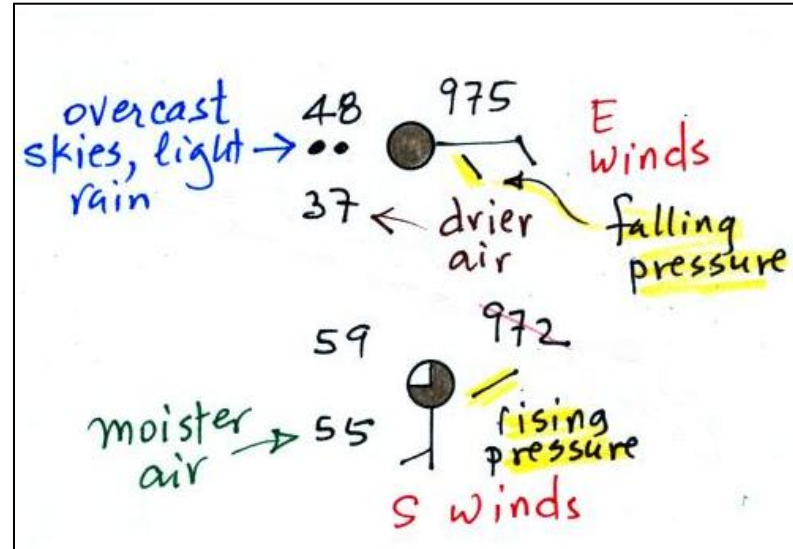 overcast
skies, light →
rain
48
975
37
E
winds
← drier
air
falling
pressure
59
972
moister
air →
55
rising
pressure
S winds